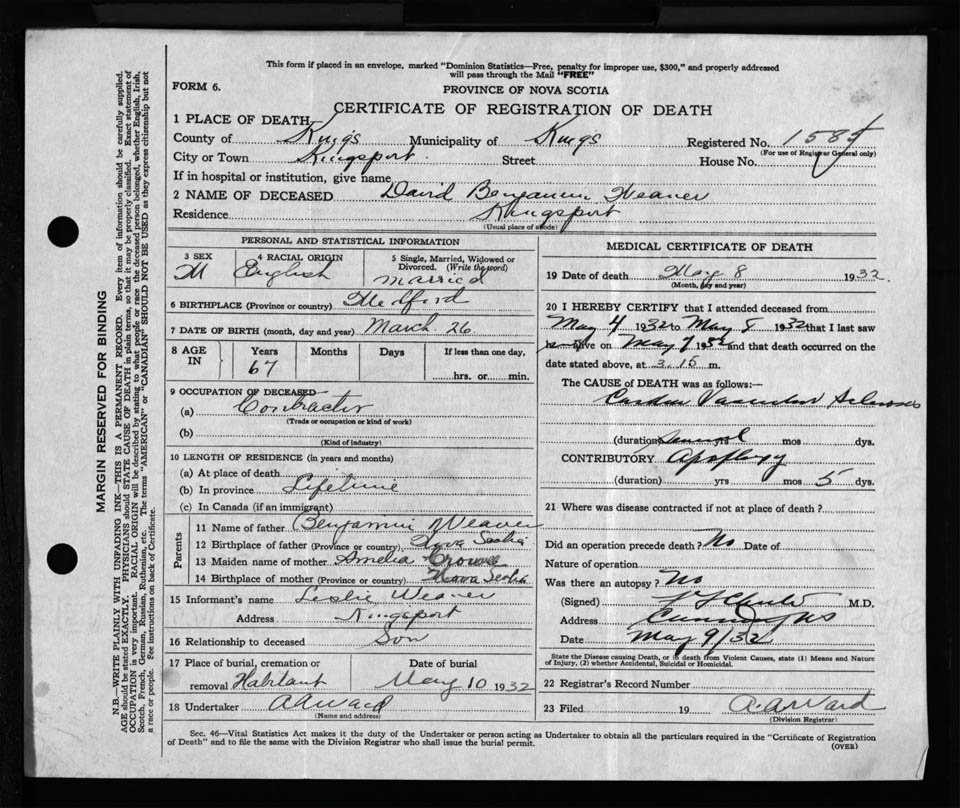 This form if placed in an envelope, marked "Dominion Statistics—Free, penalty for improper use, $300," and properly addressed
will pass through the Mail "FREE"
FORM 6.
PROVINCE OF NOVA SCOTIA
CERTIFICATE OF REGISTRATION OF DEATH
1 PLACE OF DEATH
County of Kings Municipality of Kings Registered No. 1585
(For use of Registrar General only)
City or Town Kingsport Street House No.
If in hospital or institution, give name
2 NAME OF DECEASED David Benjamin Weaver
Residence Kingsport
(Usual place of abode)
PERSONAL AND STATISTICAL INFORMATION
3 SEX
M
4 RACIAL ORIGIN
English
5 Single, Married, Widowed or
Divorced. (Write the word)
married
6 BIRTHPLACE (Province or country) Medford
7 DATE OF BIRTH (month, day and year) March 26
8 AGE IN Years Months Days If less than one day,
67 hrs. or min.
9 OCCUPATION OF DECEASED
(a) Contractor
(Trade or occupation or kind of work)
(b)
(Kind of industry)
10 LENGTH OF RESIDENCE (in years and months)
(a) At place of death
(b) In province Lifetime
(c) In Canada (if an immigrant)
Parents
11 Name of father Benjamin Weaver
12 Birthplace of father (Province or country) Nova Scotia
13 Maiden name of mother Amelia
14 Birthplace of mother (Province or country) Nova Scotia
15 Informant's name Leslie Weaver
Address Kingsport
16 Relationship to deceased Son
17 Place of burial, cremation or
removal Habitant
Date of burial
May 10 1932
18 Undertaker A A Ward
(Name and address)
MEDICAL CERTIFICATE OF DEATH
19 Date of death May 8 1932
(Month, day and year)
20 I HEREBY CERTIFY that I attended deceased from
May 4 1932 to May 8 1932 that I last saw
alive on May 7 1932 and that death occurred on the
date stated above, at 3.15 m.
The CAUSE of DEATH was as follows:—
Cardio Vascular Sclerosis
(duration) several yrs mos dys.
CONTRIBUTORY Apoplexy
(duration) yrs mos 5 dys.
21 Where was disease contracted if not at place of death?
Did an operation precede death? No Date of
Nature of operation
Was there an autopsy? No
(Signed) M.D.
Address Canning NS
Date May 9/32
State the Disease causing Death, or in death from Violent Causes, state (1) Means and Nature
of Injury, (2) whether Accidental, Suicidal or Homicidal.
22 Registrar's Record Number
23 Filed 19 A. A Ward
(Division Registrar)
Sec. 46—Vital Statistics Act makes it the duty of the Undertaker or person acting as Undertaker to obtain all the particulars required in the "Certificate of Registration
of Death" and to file the same with the Division Registrar who shall issue the burial permit.
(OVER)
MARGIN RESERVED FOR BINDING
N.B.—WRITE PLAINLY WITH UNFADING INK—THIS IS A PERMANENT RECORD. Every item of information should be carefully supplied.
AGE should be stated EXACTLY. PHYSICIANS should STATE CAUSE OF DEATH in plain terms, so that it may be properly classified. Exact statement of
OCCUPATION is very important. RACIAL ORIGIN will be described by stating to what people or race the deceased person belonged, whether English, Irish,
Scotch, French, German, Russian, Ruthenian, etc. The terms "AMERICAN" or "CANADIAN" SHOULD NOT BE USED as they express citizenship but not
a race or people. See instructions on back of Certificate.